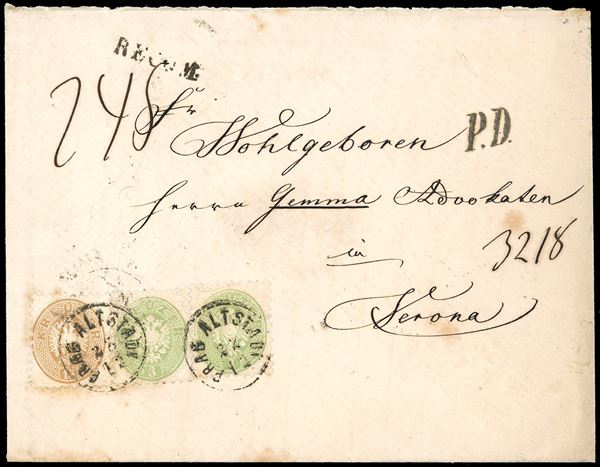 RECOM.
248
Sr
Wohlgeboren
P.D.
Herrn Gemma Advokaten
in
3218
Verona
PRAG ALTSTADT
PRAG ALTSTADT
3